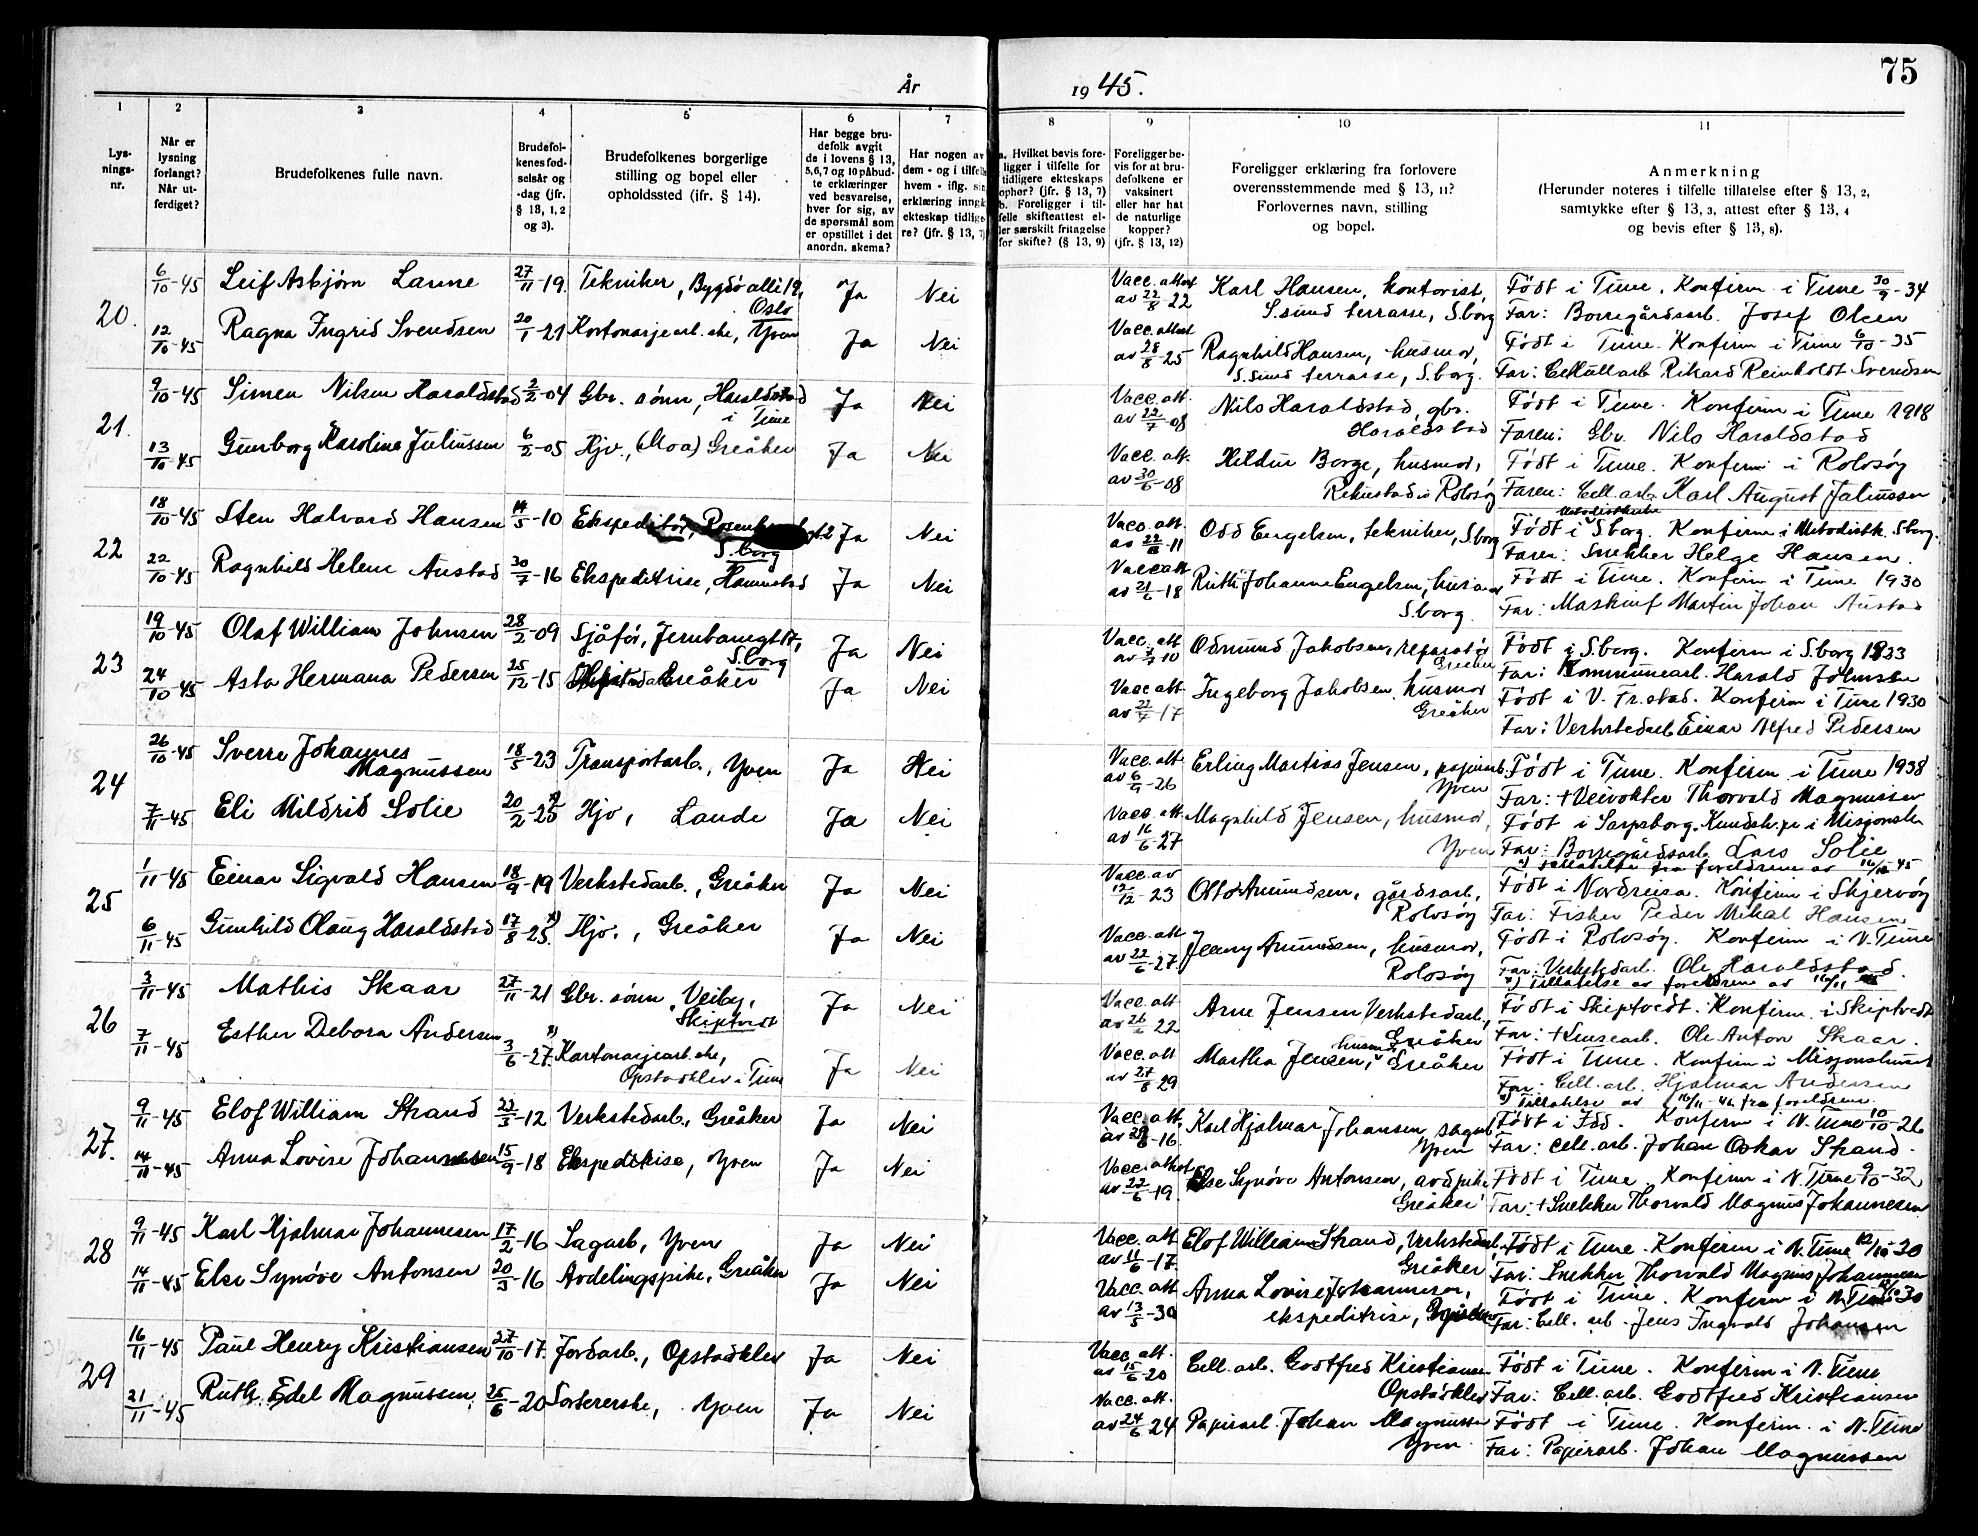 75
År
19 45.
1
2
3
4
5
6
7
8
9
10
11
Lys-
nings-
nr.
Når er
lysning
forlangt?
Når ut-
ferdiget?
Brudefolkenes fulle navn.
Brudefol-
kenes fød-
selsår og
-dag (jfr.
§ 13, 1, 2
og 3).
Brudefolkenes borgerlige
stilling og bopel eller
opholdssted (ifr. § 14).
Har begge bru-
defolk avgit
de i lovens § 13,
5, 6, 7 og 10 påbud-
te erklæringer
ved besvarelse,
hver for sig, av
de spørsmål som
er opstillet i det
anordn. skema?
Har nogen av
dem - og i tilfelle
hvem - iflg. sin
erklæring inngå
ekteskap tidlige-
re? (jfr. § 13, 7)
a. Hvilket bevis fore-
ligger i tilfelle for
tidligere ekteskaps
ophør? (jfr. § 13, 7)
b. Foreligger i til-
felle skifteattest el-
ler særskilt fritagelse
for skifte? (§ 13, 9)
Foreligger be-
vis for at bru-
defolkene er
vaksinert
eller har hat
de naturlige
kopper?
(jfr. § 13, 12)
Foreligger erklæring fra forlovere
overensstemmende med § 13, 11?
Forlovernes navn, stilling
og bopel.
Anmerkning
(Herunder noteres i tilfelle tillatelse efter § 13, 2,
samtykke efter § 13, 3, attest efter § 13, 4
og bevis efter § 13, 8).
20.
6/10-45 Leif Asbjørn Lanne 27/11-19. Tekniker, Bygdö allé 19, Oslo Ja Nei Vacc. attest av 22/8-22 Karl Hansen, kontorist, S.sund terrasse, S.borg Født i Tune. Konfirm. i Tune 30/9-34
Far: Borregårdsarb. Josef Olsen
12/10-45 Ragna Ingrid Svendsen 20/1-21 Kartonasjearb.ske, Yven Ja Nei Vacc. attest av 28/8-25 Ragnhild Hansen, husmor, S.sund terrasse, S.borg. Født i Tune. Konfirm i Tune 6/10-35
Far: Cellull arb Rikard Reinholdt Svendsen
21.
9/10-45 Simen Nilsen Haraldstad 2/2-04 Gbr. sønn, Haraldstad i Tune Ja Nei Vacc. att. av 22/7-08 Nils Haraldstad, gbr. Haraldstad Født i Tune. Konfirm i Tune 1918
Faren: Gbr. Nils Haraldstad
13/10-45 Gunborg Karoline Juliussen 6/2-05 Hjv., (Moa) Greåker Ja Nei Vacc. att. av 30/6-08 Hildur Borge, husmor, Rolvsøy Født i Tune. Konfirm i Rolvsøy
Faren: Cell. arb. Karl August Juliussen
22
18/10-45 Sten Halvard Hansen 14/5-10 Ekspeditør, S.borg Ja Nei Vacc. att. Odd Engelsen, tekniker, S.borg Født i S.borg. Konfirm i Metodistk. S.borg.
Faren: Snekker Helge Hansen.
22/10-45 Ragnhild Helene Austad 30/7-16 Ekspeditrise, Hannestad Ja Nei Vacc att av 21/6-18 Ruth Johanne Engelsen, husmor S.borg. Født i Tune. Konfirm i Tune 1930
Far: Maskinf Martin Johan Austad
23
19/10-45 Olaf William Johnsen 28/2-09 Sjåfør, Jernbanegt 17, S.borg Ja Nei Vacc. att. Odmund Jakobsen, reparatør Greåker Født i S.borg. Konfirm i S.borg 1933
Far: Kommunearb. Harald Johnsen
24/10-45 Asta Hermana Pedersen 25/12-15 Greåker Ja Nei Vacc att. av 22/7-17 Ingeborg Jakobsen husmor Greåker Født i V. Fr.stad. Konfirm i Tune 1930
Far: Verkstedarb Einar Alfred Pedersen
24
26/10-45 Sverre Johannes Magnussen 18/5-23 Transportarb., Yven Ja Nei Vacc. att. av 6/9-26 Erling Mathias Jensen, papirarb. Yven Født i Tune. Konfirm i Tune 1938
Far: + Veivokter Thorvald Magnussen
7/11-45 Eli Mildrid Solie 20/2-25 x) Hjv, Lande Ja Nei Vacc. att. av 16/6-27 Magnhild Jensen, husmor, Yven Født i Sarpsborg. i Misjonsk
Far: Borregårdsarb Lars Solie
x) Tillatelse fra foreldrene av 16/10-45
25
1/11-45 Einar Sigvald Hansen 18/9-19 Verkstedarb., Greåker Ja Nei Vacc. av 12/12-23 Otto Amundsen, gårdsarb, Rolvsøy Født i Nordreisa. Konfirm i Skjervøy
Far: Fisker Peder Mikal Hansen
6/11-45 Gunhild Olaug Haraldstad 17/8-25. x) Hjv., Greåker Ja Nei Vacc. att av 22/6-27 Jenny Amundsen, husmor, Rolvsøy Født i Rolvsøy. Konfirm i N. Tune
Far: Verkstedarb. Ole Haraldstad.
x) Tillatelse av foreldrene av 16/11 45
26
3/11-45 Mathis Skaar 27/11-21 Gbr. sønn Veiby, Skiptvedt Ja Nei Vacc. att av 26/ 22 Arne Jensen Verkstedarb., Greåker Født i Skiptvedt. Konfirm. i Skiptvedt
Far: + Ole Anton Skaar.
7/11-45 Esther Debora Andersen 3/6-27. x) Kartonasjearb.ske, Opstadklev i Tune Ja Nei Vacc. att av 27/8 29 Martha Jensen, husmor, Greåker Født i Tune. Konfirm i Misjonshuset
Far: Cell. arb. Hjalmar Andersen
x) Tillatelse av 16/11-45 fra foreldrene.
27.
9/11-45 Elof William Strand 22/3-12 Verkstedarb., Greåker Ja Nei Vacc. att. av 29/8-16. Karl Hjalmar Johansen sagarb Yven Født i Idd. Konfirm i N. Tune 10/10-26
Far: Cell. arb. Johan Oskar Strand.
14/11-45 Anna Lovise Johannesen 15/9-18 Ekspeditrise, Yven Ja Nei Vacc. attest av 22/6-19 Else Synøve Antonsen, avd.pike Greåker Født i Tune. Konfirm i N. Tune 9/10-32
Far: + Snekker Thorvald Magnus Johannesen
28
9/11-45 Karl Hjalmar Johannesen 17/2-16 Sagarb, Yven Ja Nei Vacc. att. av 11/6-17. Elof William Strand, Verkstedarb. Greåker Født i Tune. Konfirm i N. Tune 12/10-30
Far: Snekker Thorvald Magnus Johannesen
14/11-45 Else Synøve Antonsen 20/5-16 Avdelingspike, Greåker Ja Nei Vacc. att. av 13/5-30 Anna Lovise Johannesen, ekspeditrise, Født i Tune. Konfirm i N. Tune 30
Far: Cell. arb. Jens Ingvald Johansen
29
16/11-45 Paul Henry Kristiansen 27/10-17. Jordarb., Opstadklev Ja Nei Vacc. att. av 15/6-20 Cell. arb. Godtfred Kristiansen Opstadklev Født i Tune. Konfirm i N. Tune
Far: Cell. arb. Godtfred Kristiansen
21/11-45 Ruth Edel Magnussen 25/6-20 Sorterske, Yven Ja Nei Vacc. att. av 24/6-24 Papirarb. Johan Magnussen Yven. Født i Tune. Konfirm. i N. Tune
Far: Papirarb. Johan Magnussen